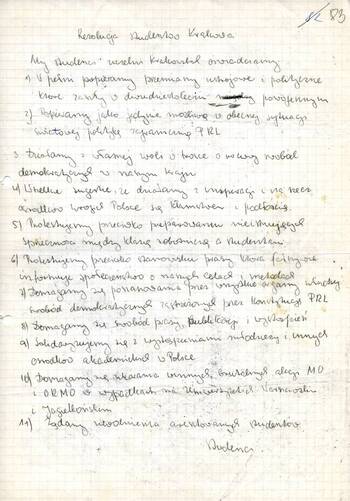 83
Rezolucja Studentów Krakowa
My studenci uczelni krakowskich oświadczamy
1) W pełni popieramy przemiany ustrojowe i polityczne
które zaszły w dwudziestoleciu powojennym
2) Popieramy jako jedynie możliwą w obecnej sytuacji
światowej politykę zagraniczną PRL
3. Działamy z własnej woli w trosce o rozwój swobód
demokratycznych w naszym kraju
4) Wszelkie sugestie, że działamy z inspiracji i na rzecz
ośrodków wrogich Polsce są kłamstwem i podłością.
5) Protestujemy przeciwko preparowaniu nieistniejących
sprzeczności między klasą robotniczą a studentami
6) Protestujemy przeciwko stanowisku prasy która fałszywie
informuje społeczeństwo o naszych celach i metodach
7) Domagamy się poszanowania przez wszystkie organy władzy
swobód demokratycznych zastrzeżonych przez Konstytucję PRL
8) Domagamy się swobód prasy, publikacji i wystąpień
9) Solidaryzujemy się z wystąpieniami młodzieży innych
ośrodków akademickich w Polsce
10) Domagamy się ukarania winnych brutalnych akcji MO
i ORMO w wypadkach na Uniwersytecie Warszawskim
i Jagiellońskim
11) Żądamy uwolnienia aresztowanych studentów
Studenci.